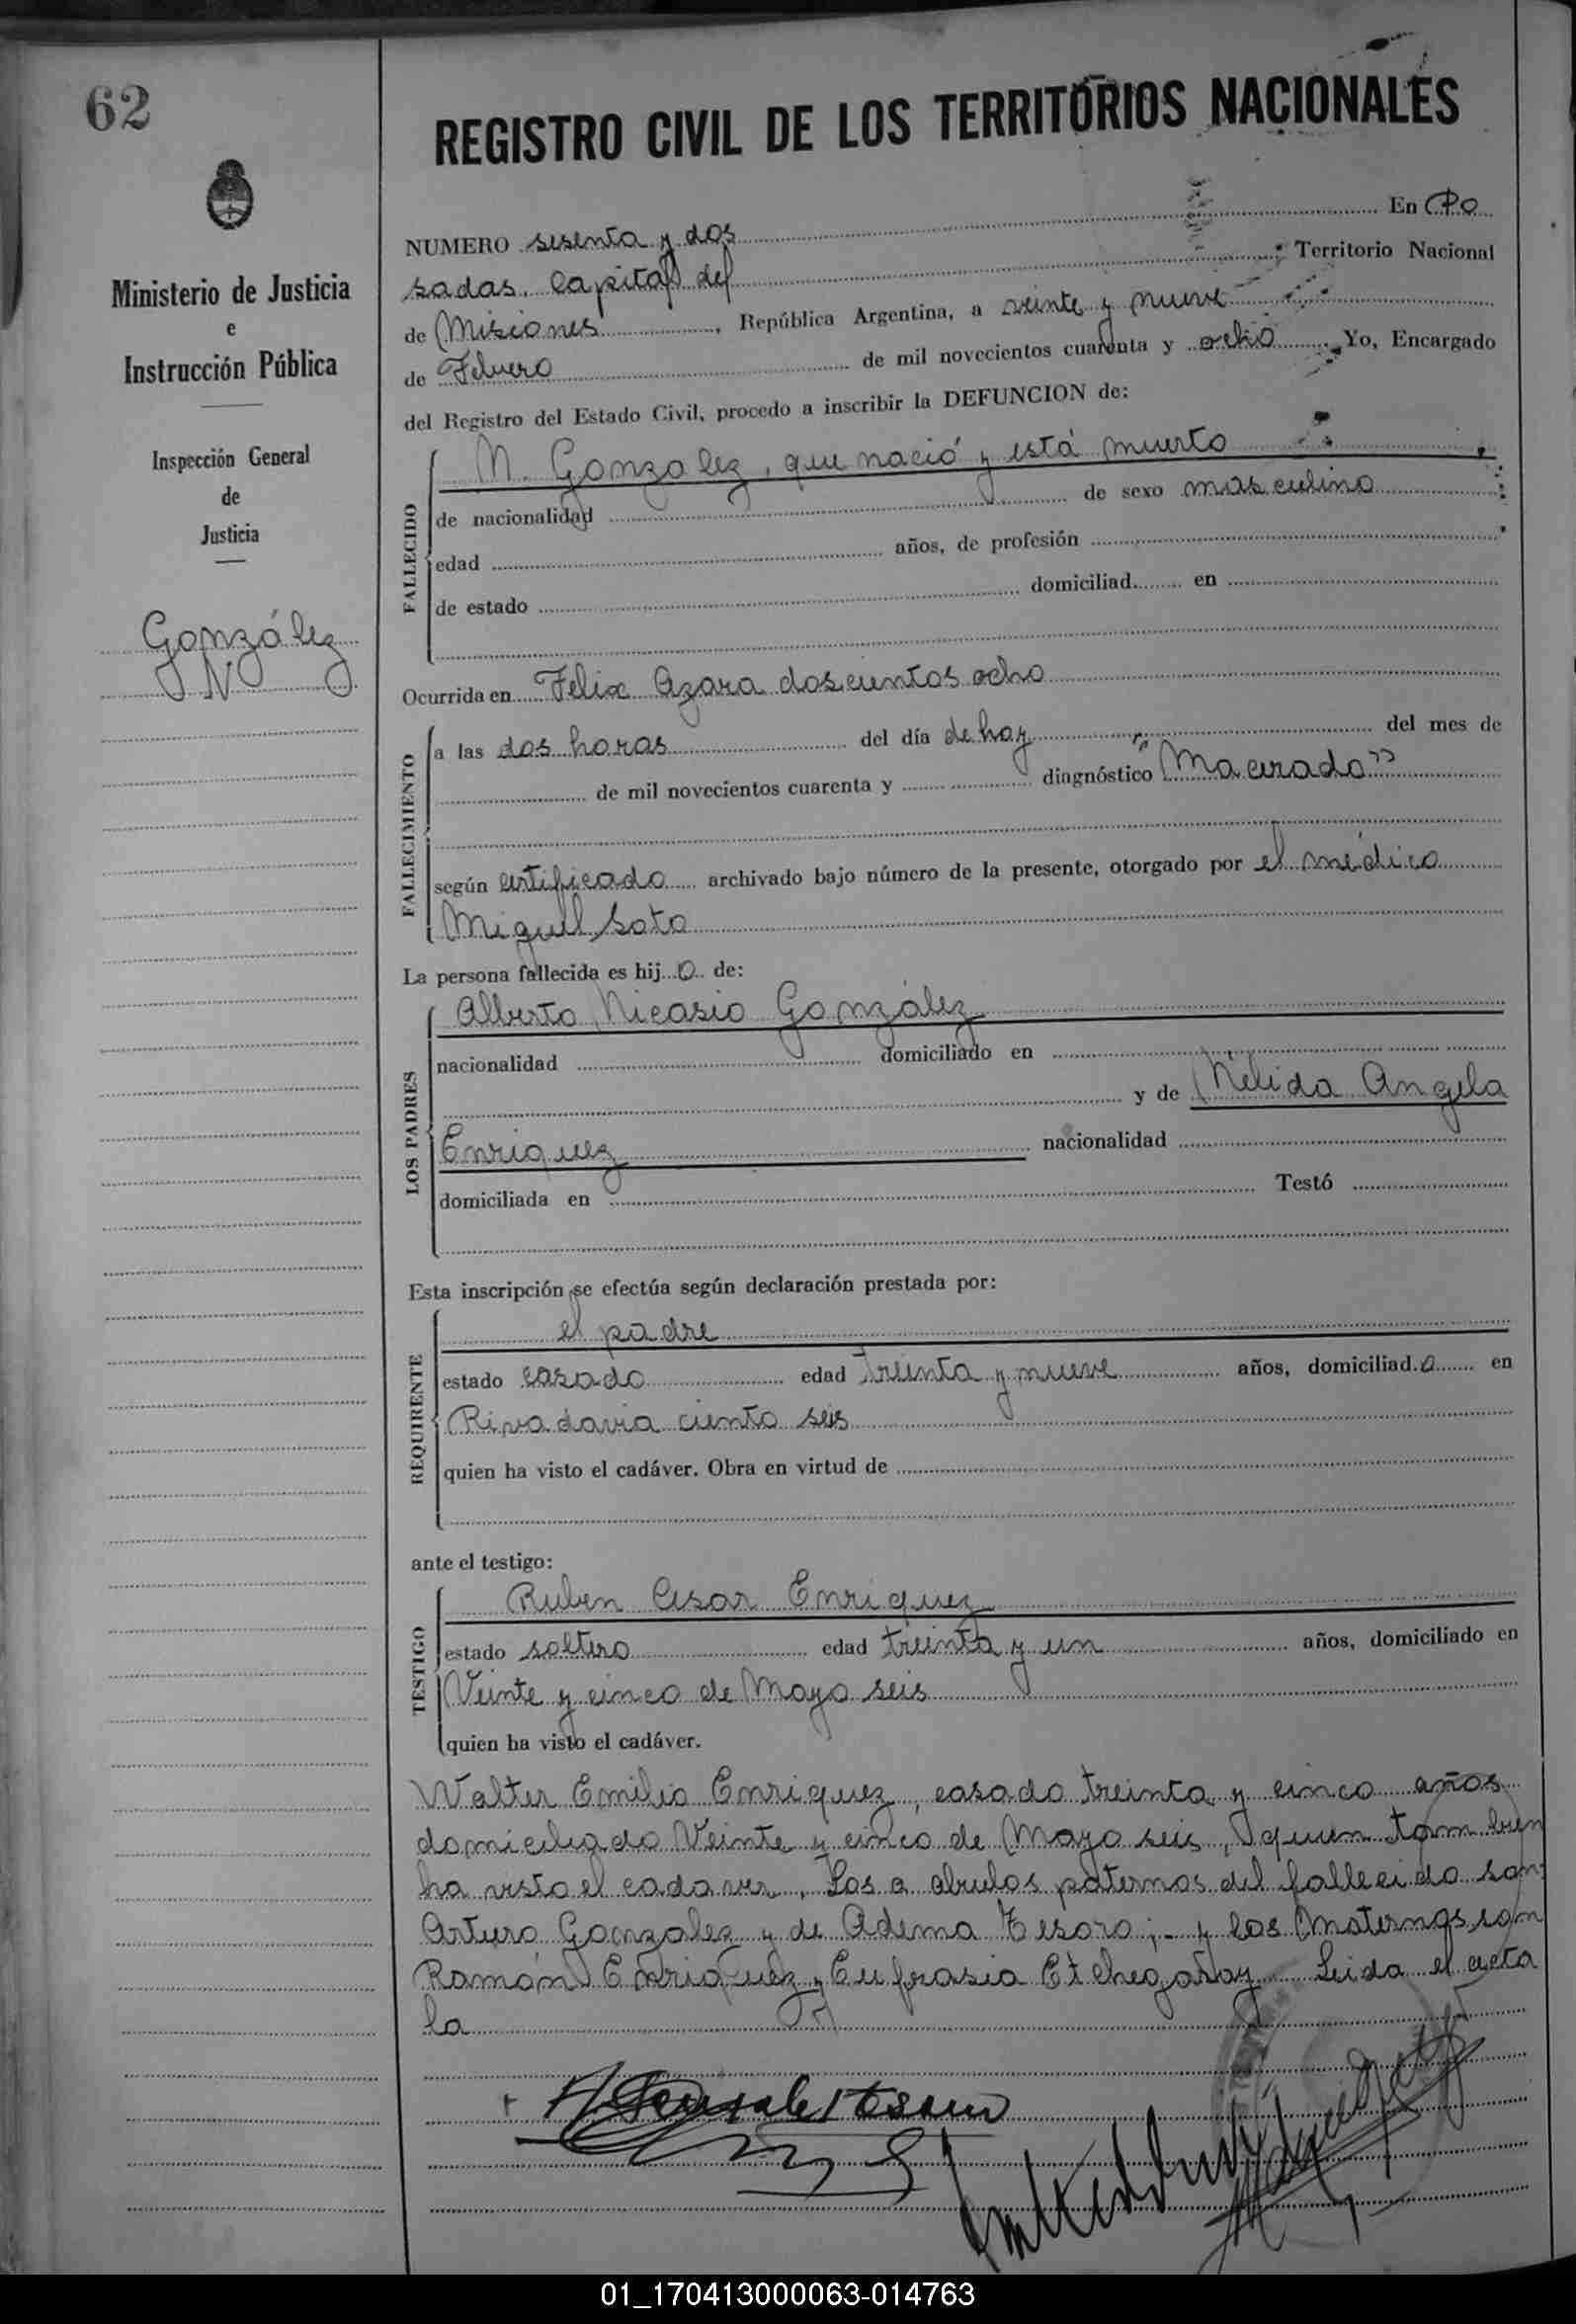 62
REGISTRO CIVIL DE LOS TERRITORIOS NACIONALES
Ministerio de Justicia
e
Instrucción Pública
Inspección General
de
Justicia
González
N
NUMERO sesenta y dos En Po
sadas, Capital del ; Territorio Nacional
de Misiones, República Argentina, a veinte y nueve
de Febrero de mil novecientos cuarenta y ocho. Yo, Encargado
del Registro del Estado Civil, procedo a inscribir la DEFUNCION de:
FALLECIDO
N. Gonzalez, que nació y está muerto
de nacionalidad de sexo masculino
edad años, de profesión
de estado domiciliad en
Ocurrida en Felix Azara doscientos ocho
FALLECIMIENTO
a las dos horas del día de hoy del mes de
de mil novecientos cuarenta y diagnóstico "Macerado"
según certificado archivado bajo número de la presente, otorgado por el médico
Miguel Soto
La persona fallecida es hij o de:
LOS PADRES
Alberto Nicasio González
nacionalidad domiciliado en
y de Nélida Angela
Enriquez nacionalidad
domiciliada en Testó
Esta inscripción se efectúa según declaración prestada por:
REQUIRENTE
el padre
estado casado edad treinta y nueve años, domiciliad o en
Rivadavia ciento seis
quien ha visto el cadáver. Obra en virtud de
ante el testigo:
TESTIGO
Ruben Cesar Enriquez
estado soltero edad treinta y un años, domiciliado en
Veinte y cinco de Mayo seis
quien ha visto el cadáver.
Walter Emilio Enriquez, casado treinta y cinco años
domiciliado Veinte y cinco de Mayo seis, quien tambien
ha visto el cadaver. Los abuelos paternos del fallecido son:
Arturo Gonzalez y de Adema Tesoro;- y los maternos son
Ramón Enriquez y Eufrasia Etchegaray Leida el acta
la
01_170413000063-014763